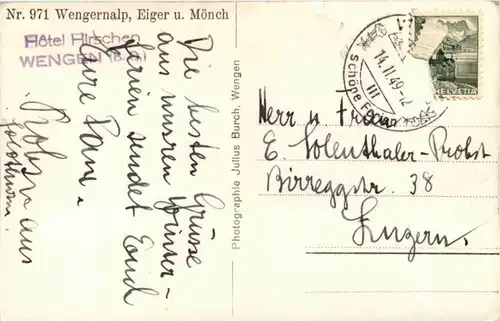 Nr. 971 Wengernalp, Eiger u. Mönch
Hôtel Hirschen
WENGEN
Die besten Grüsse
aus unseren Winter-
ferien sendet Euch
Eure Fam.
aus
Solothurn.
Photographie Julius Burch, Wengen
14.II.49-12
III
HELVETIA
Herr u. Frau
E. Solenthaler-Probst
Birreggstr. 38
Luzern.